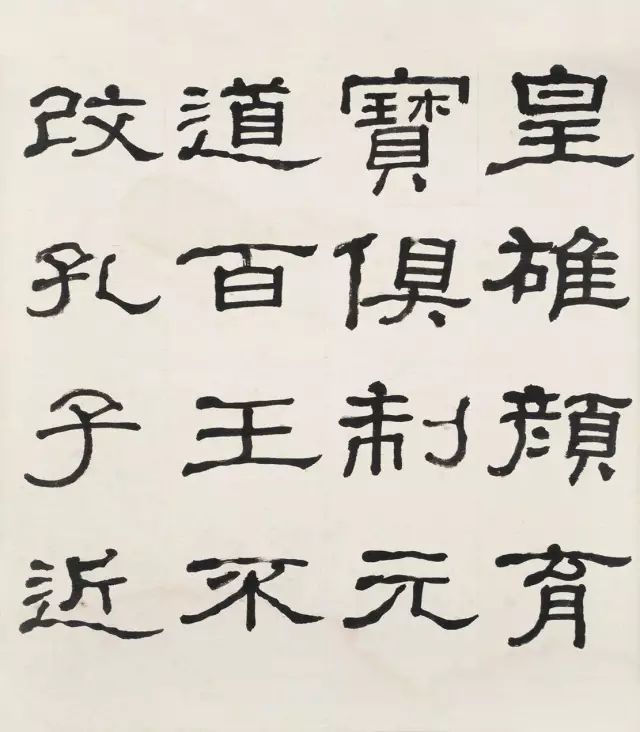 皇雄顏育
寶俱制元
道百王不
改孔子近